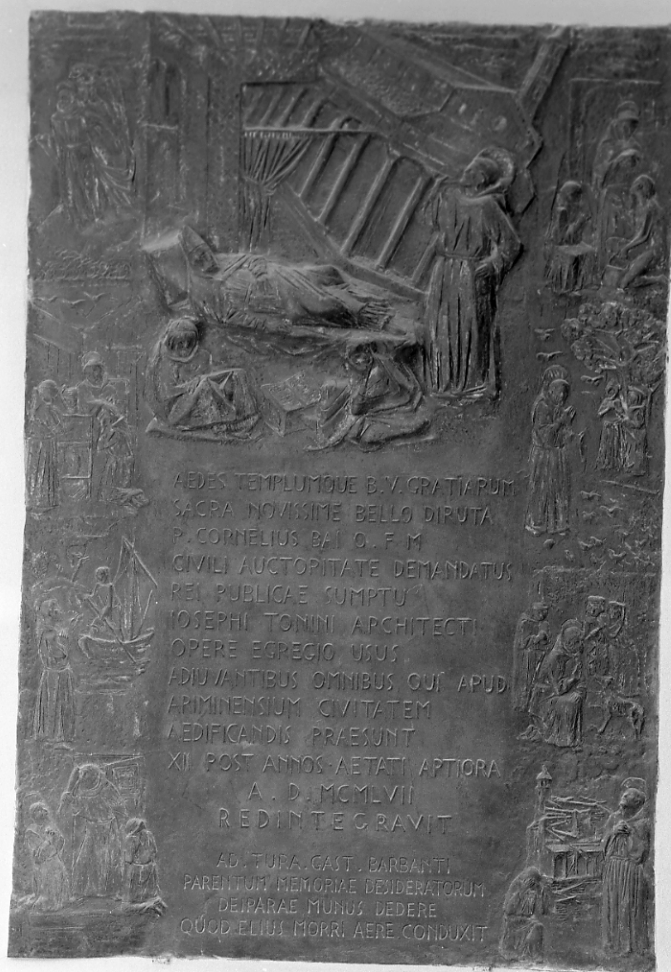 AEDES TEMPLUMQUE B.V. GRATIARUM
SACRA NOVISSIME BELLO DIRUTA
P. CORNELIUS BAI O.F.M
CIVILI AUCTORITATE DEMANDATUS
REI PUBLICAE SUMPTU
IOSEPHI TONINI ARCHITECTI
OPERE EGREGIO USUS
ADIUVANTIBUS OMNIBUS QUI APUD
ARIMINENSIUM CIVITATEM
AEDIFICANDIS PRAESUNT
XII POST ANNOS AETATI APTIORA
A.D. MCMLVII
REDINTEGRAVIT
AD. TURA. GAST. BARBANTI
PARENTUM MEMORIAE DESIDERATORUM
DEIPARAE MUNUS DEDERE
QUOD ELIUS MORRI AERE CONDUXIT